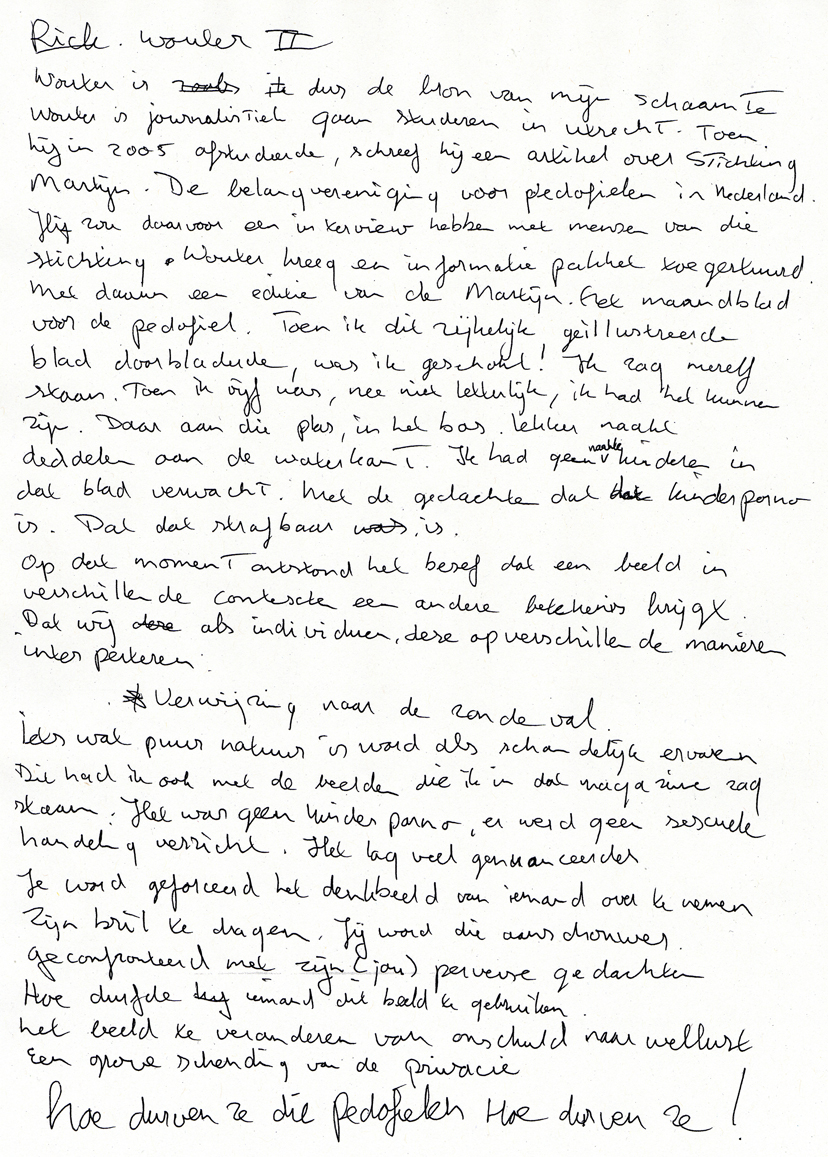 Rick. Wouter II
Wouter is zoals ik dus de bron van mijn schaamte
Wouter is journalistiek gaan studeren in utrecht. Toen
hij in 2005 afstudeerde, schreef hij een artikel over Stichting
Martijn. De belangvereniging voor pedofielen in Nederland.
Hij zou daarvoor een interview hebben met mensen van die
stichting. Wouter kreeg een informatie pakket toegestuurd.
Met daarin een editie van de Martijn. Het maandblad
voor de pedofiel. Toen ik dit rijkelijk geïllustreerde
blad doorbladerde, was ik geschokt! Ik zag mezelf
staan. Toen ik vijf was, nee niet letterlijk, ik had het kunnen
zijn. Daar aan die plas, in het bos. lekker naakt
deddelen aan de waterkant. Ik had geen naakte kinderen in
dat blad verwacht. Met de gedachte dat dat kinderporno
is. Dat dat strafbaar was is.
Op dat moment ontstond het besef dat een beeld in
verschillende contescten een andere betekenis krijgt.
Dat wij deze als individuen, deze op verschillende manieren
interperteren.
* Verwijzing naar de zondeval.
Iets wat puur natuur is word als schandelijk ervaren
Die had ik ook met de beelden die ik in dat magazine zag
staan. Het was geen kinderporno, er werd geen sescuele
handeling verricht. Het lag veel genuanceerder
Je word geforceerd het denkbeeld van iemand over te nemen
Zijn bril te dragen. Jij word die aanschouwer.
geconfronteerd met zijn (jou) perverse gedachten
Hoe durfde hij iemand dit beeld te gebruiken.
het beeld te veranderen van onschuld naar wellust
Een grove schending van de privacie
hoe durven ze die pedofielen Hoe durven ze!